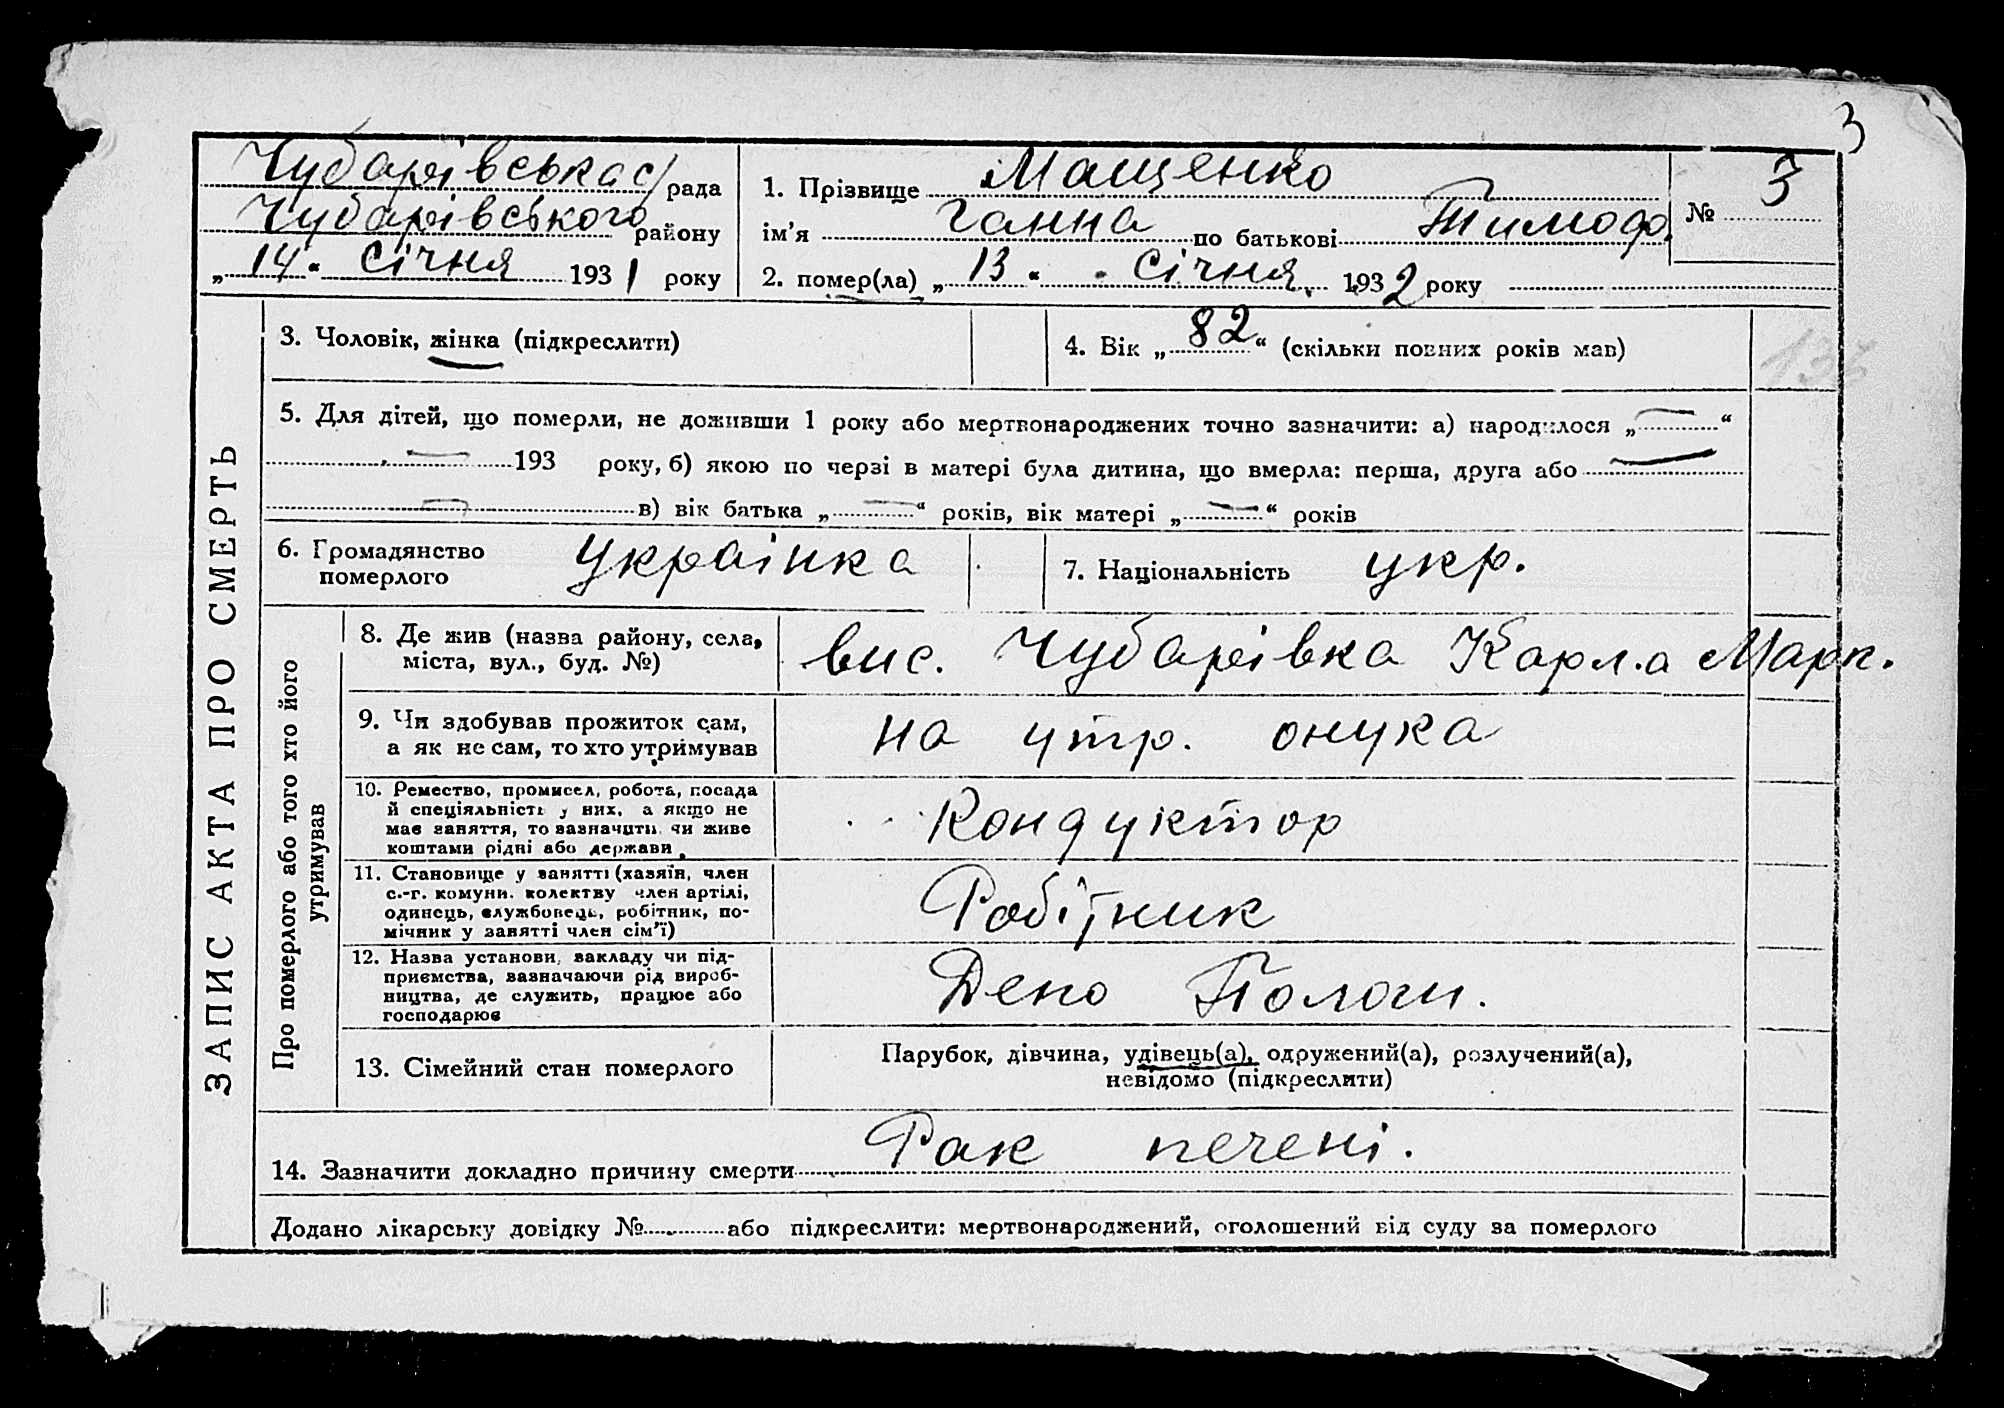 3
Чубарівська с/рада
Чубарівського району
„14“ Січня 1931 року
1. Прізвище Мащенко
ім'я Ганна по батькові Тимоф.
№ 3
2. помер(ла) „13“ Січня 1932 року
ЗАПИС АКТА ПРО СМЕРТЬ
3. Чоловік, жінка (підкреслити)
4. Вік „82“ (скільки повних років мав)
136
5. Для дітей, що померли, не доживши 1 року або мертвонароджених точно зазначити: а) народилося „—“
— 193 року, б) якою по черзі в матері була дитина, що вмерла: перша, друга або —
— в) вік батька „—“ років, вік матері „—“ років
6. Громадянство
померлого
Украінка
7. Національність укр.
Про померлого або того хто його
утримував
8. Де жив (назва району, села,
міста, вул., буд. №)
вис. Чубарівка Карла Марк.
9. Чи здобував прожиток сам,
а як не сам, то хто утримував
на утр. онука
10. Ремество, промисел, робота, посада
й спеціяльність у них, а якщо не
має заняття, то зазначити чи живе
коштами рідні або держави
Кондуктор
11. Становище у занятті (хазяїн, член
с.-г. комуни, колективу член артілі,
одинець, службовець, робітник, по-
мічник у занятті член сім'ї)
Робітник
12. Назва установи, закладу чи під-
приємства, зазначаючи рід вироб-
ництва, де служить, працює або
господарює
Депо Пологи.
13. Сімейний стан померлого
Парубок, дівчина, удівець(а), одружений(а), розлучений(а),
невідомо (підкреслити)
14. Зазначити докладно причину смерти Рак печені.
Додано лікарську довідку № або підкреслити: мертвонароджений, оголошений від суду за померлого